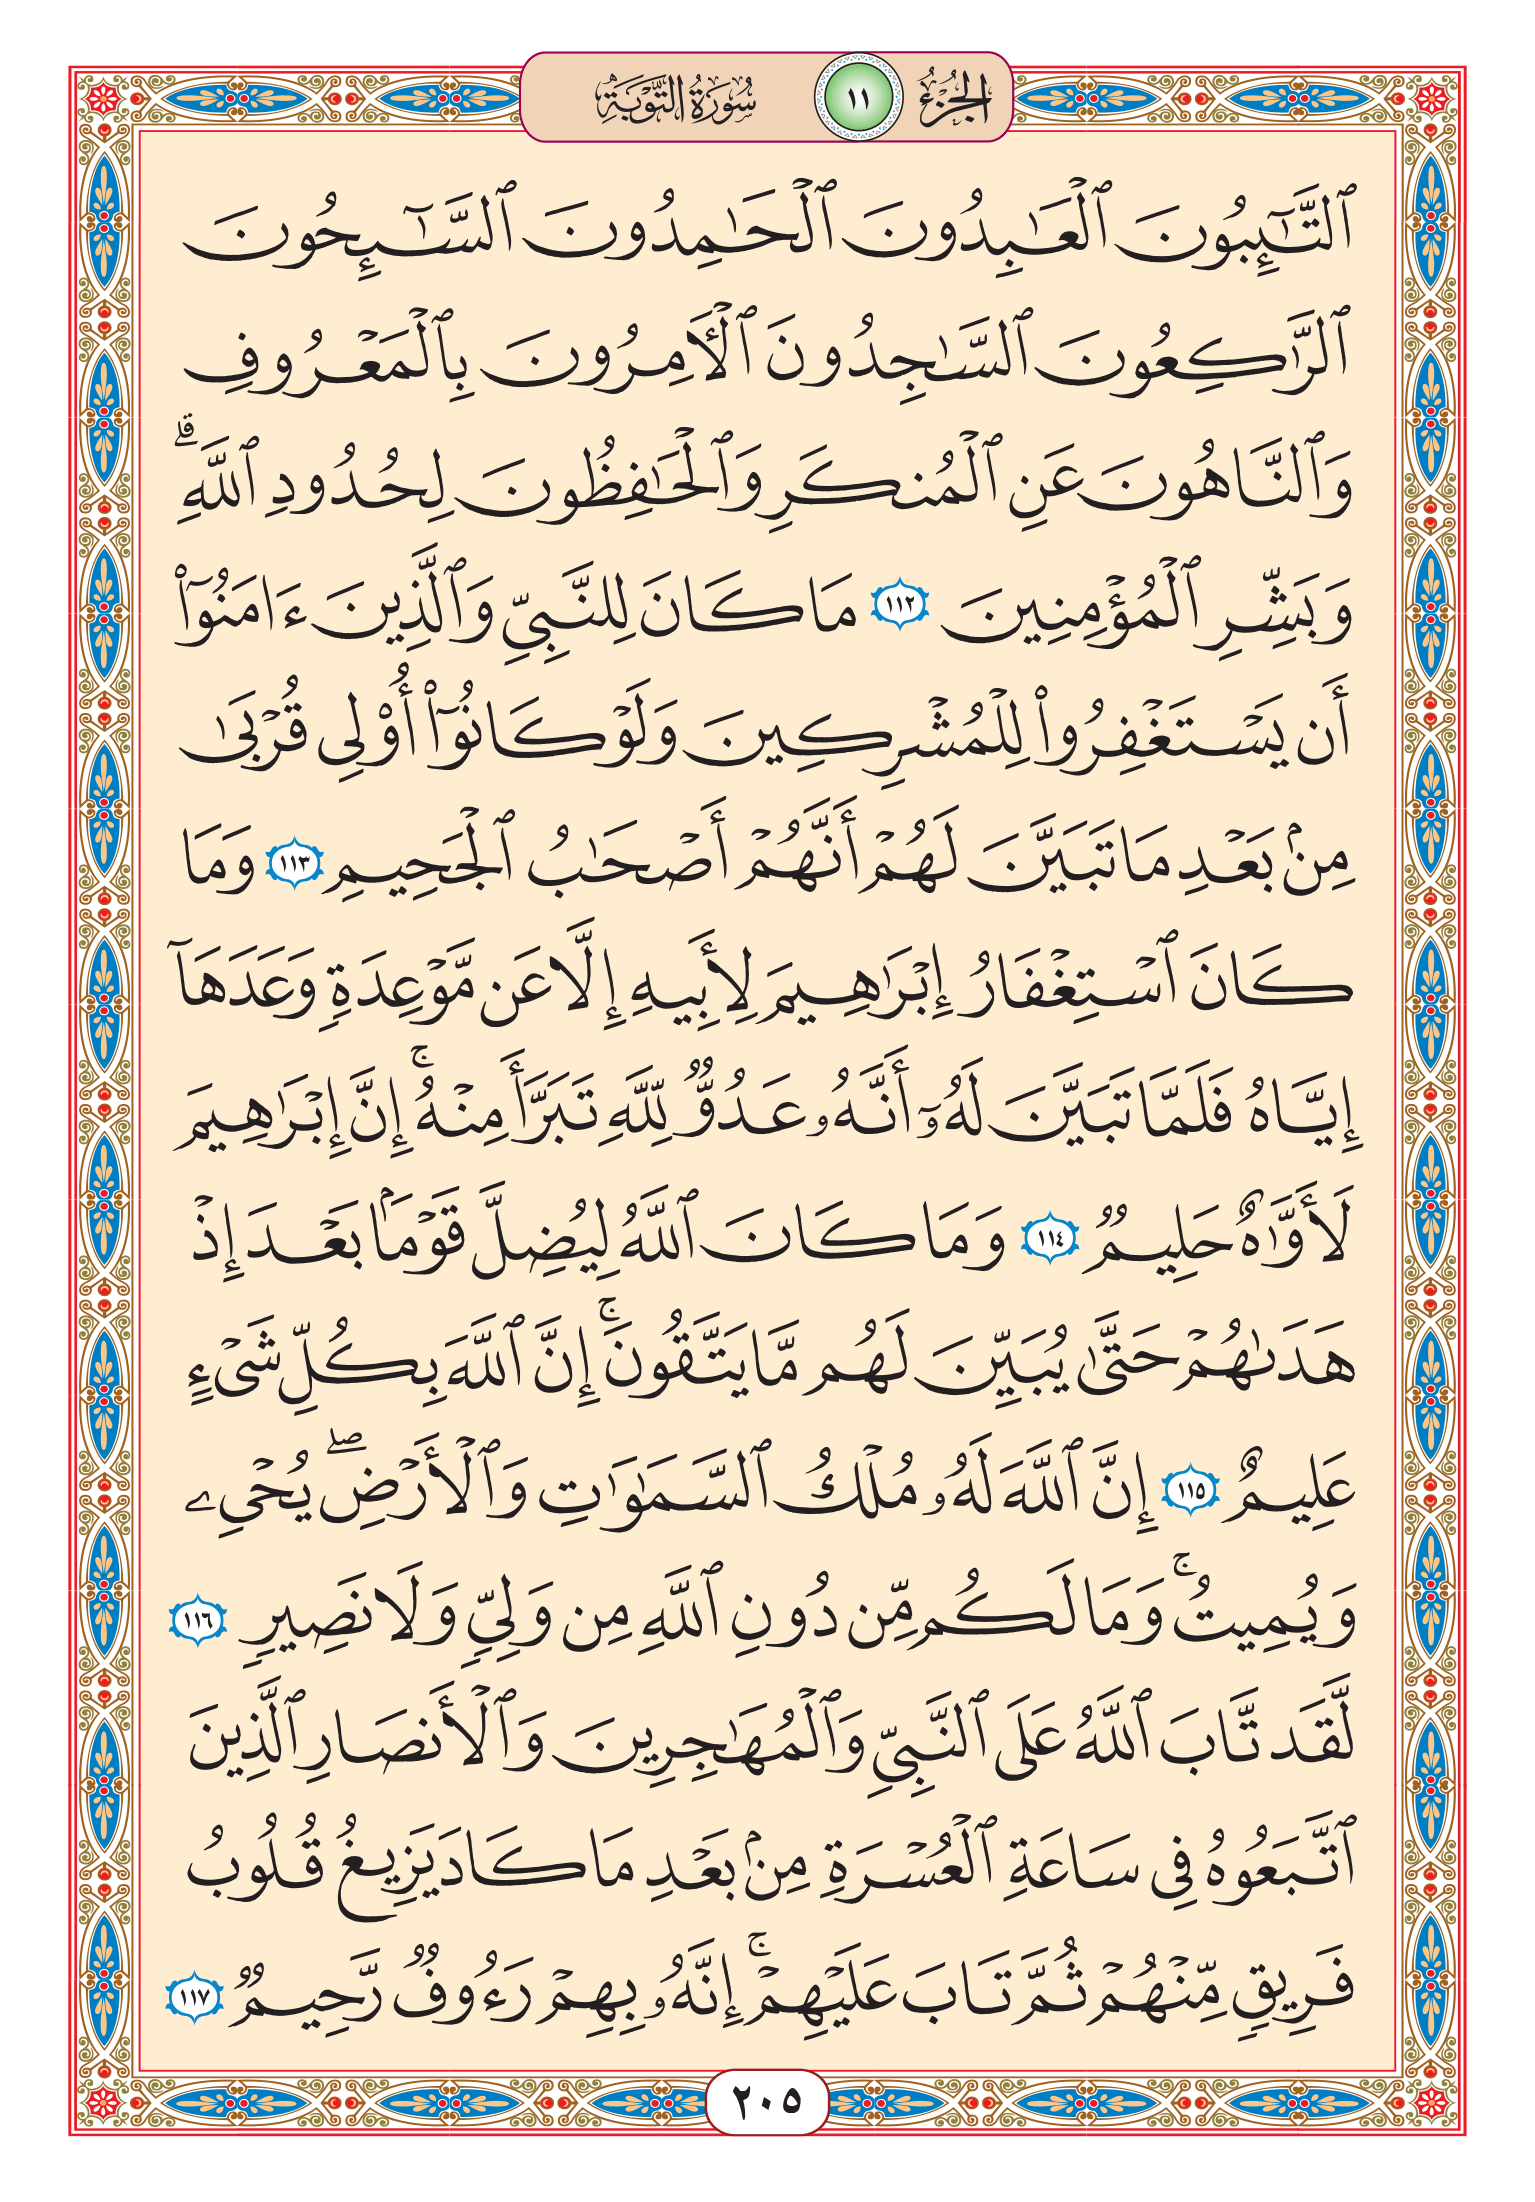 الجزء ١١ سورة التوبة
ٱلتَّٰٓئِبُونَ ٱلْعَٰبِدُونَ ٱلْحَٰمِدُونَ ٱلسَّٰٓئِحُونَ
ٱلرَّٰكِعُونَ ٱلسَّٰجِدُونَ ٱلْءَامِرُونَ بِٱلْمَعْرُوفِ
وَٱلنَّاهُونَ عَنِ ٱلْمُنكَرِ وَٱلْحَٰفِظُونَ لِحُدُودِ ٱللَّهِ ۗ
وَبَشِّرِ ٱلْمُؤْمِنِينَ ١١٢ مَا كَانَ لِلنَّبِىِّ وَٱلَّذِينَ ءَامَنُوٓا۟
أَن يَسْتَغْفِرُوا۟ لِلْمُشْرِكِينَ وَلَوْ كَانُوٓا۟ أُو۟لِى قُرْبَىٰ
مِنۢ بَعْدِ مَا تَبَيَّنَ لَهُمْ أَنَّهُمْ أَصْحَٰبُ ٱلْجَحِيمِ ١١٣ وَمَا
كَانَ ٱسْتِغْفَارُ إِبْرَٰهِيمَ لِأَبِيهِ إِلَّا عَن مَّوْعِدَةٍ وَعَدَهَآ
إِيَّاهُ فَلَمَّا تَبَيَّنَ لَهُۥٓ أَنَّهُۥ عَدُوٌّ لِّلَّهِ تَبَرَّأَ مِنْهُ ۚ إِنَّ إِبْرَٰهِيمَ
لَأَوَّٰهٌ حَلِيمٌ ١١٤ وَمَا كَانَ ٱللَّهُ لِيُضِلَّ قَوْمًۢا بَعْدَ إِذْ
هَدَىٰهُمْ حَتَّىٰ يُبَيِّنَ لَهُم مَّا يَتَّقُونَ ۚ إِنَّ ٱللَّهَ بِكُلِّ شَىْءٍ
عَلِيمٌ ١١٥ إِنَّ ٱللَّهَ لَهُۥ مُلْكُ ٱلسَّمَٰوَٰتِ وَٱلْأَرْضِ ۖ يُحْىِۦ
وَيُمِيتُ ۚ وَمَا لَكُم مِّن دُونِ ٱللَّهِ مِن وَلِىٍّ وَلَا نَصِيرٍ ١١٦
لَّقَد تَّابَ ٱللَّهُ عَلَى ٱلنَّبِىِّ وَٱلْمُهَٰجِرِينَ وَٱلْأَنصَارِ ٱلَّذِينَ
ٱتَّبَعُوهُ فِى سَاعَةِ ٱلْعُسْرَةِ مِنۢ بَعْدِ مَا كَادَ يَزِيغُ قُلُوبُ
فَرِيقٍ مِّنْهُمْ ثُمَّ تَابَ عَلَيْهِمْ ۚ إِنَّهُۥ بِهِمْ رَءُوفٌ رَّحِيمٌ ١١٧
٢٠٥